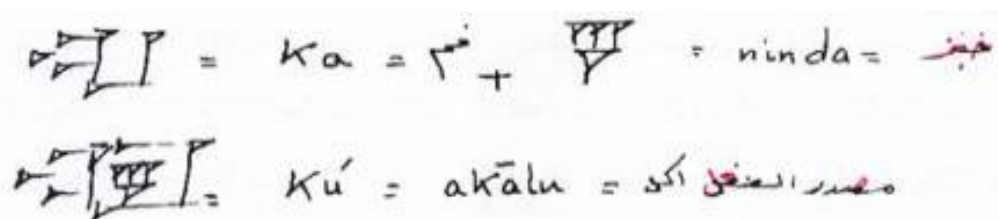 𒅗 = Ka = فم + 𒃻 = ninda = خبز
𒅥 = Kú = akālu = مصدر الفعل اكل